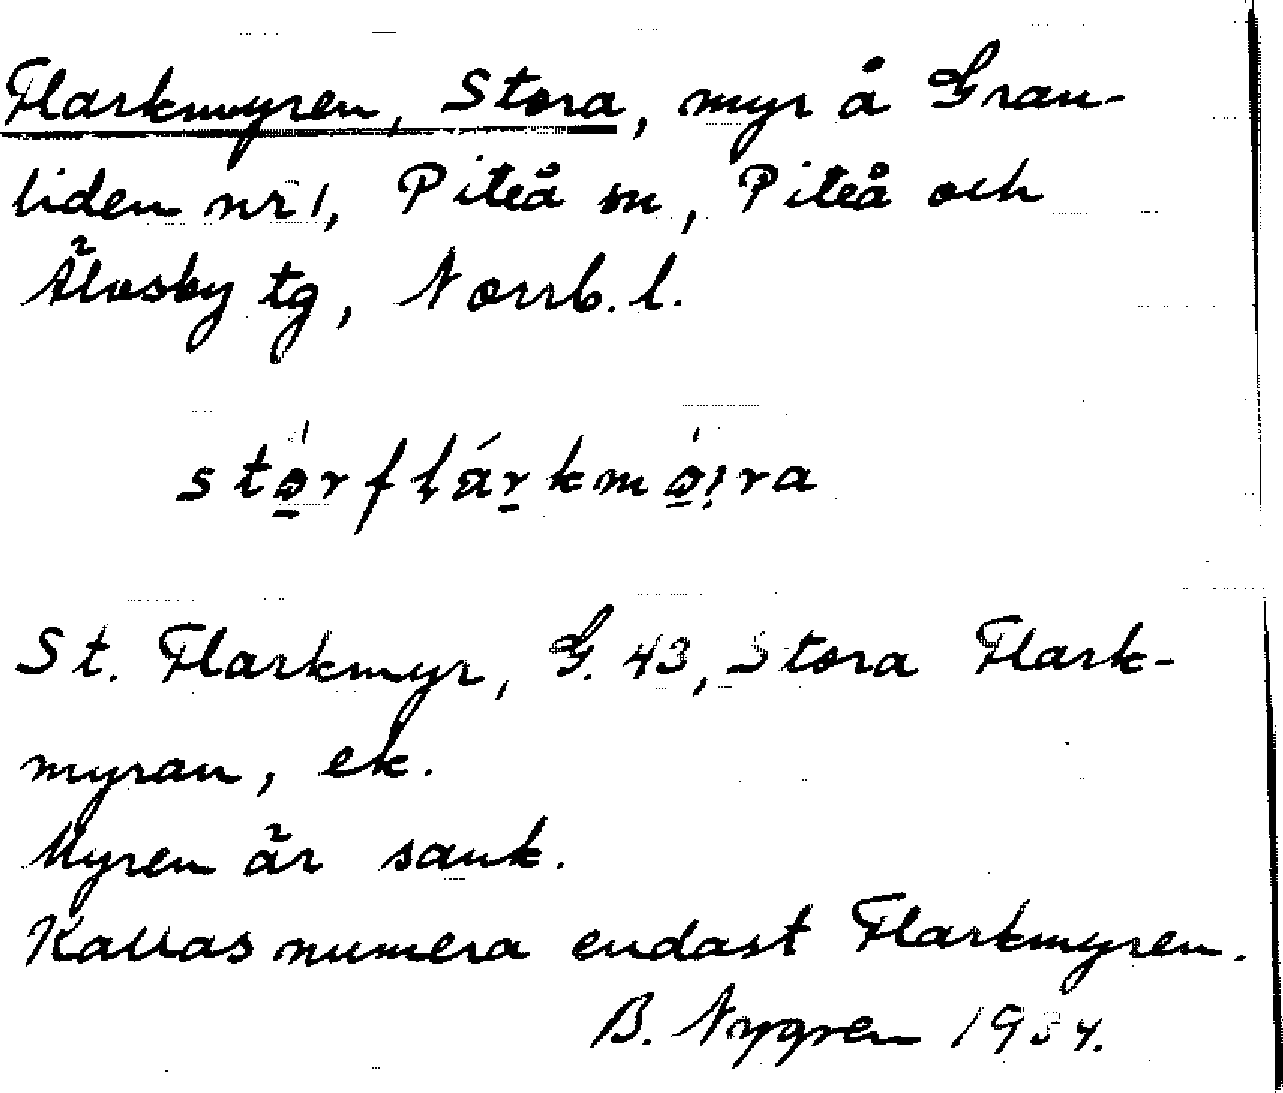 Flarkmyren, Stora, myr å Gran-
liden nr 1, Piteå sn, Piteå och
Älvsby tg, Norrb. l.
St. Flarkmyr, G. 43, Stora Flark-
myran, ek.
Myren är sank.
Kallas numera endast Flarkmyren.
B. Nygren 1934.